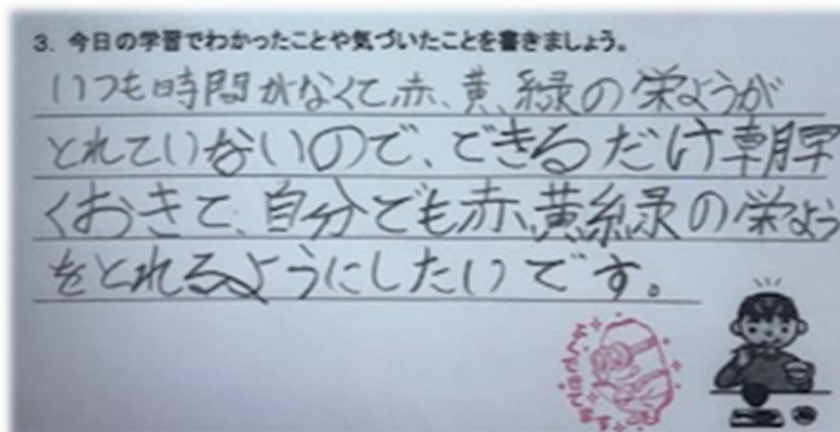 3. 今日の学習でわかったことや気づいたことを書きましょう。
いつも時間がなくて、赤、黄、緑の栄ようが
とれていないので、できるだけ朝早
くおきて、自分でも赤、黄、緑の栄よう
をとれるようにしたいです。
よくできてます